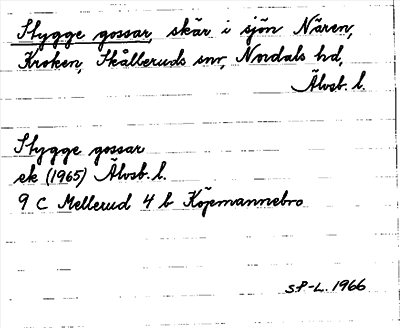 Stygge gossar, skär i sjön Nären,
Kroken, Skålleruds snr, Nordals hd,
Älvsb. l.
Stygge gossar
ek (1965) Älvsb. l.
9 C Mellerud 4 b Köpmannebro
SP-L. 1966